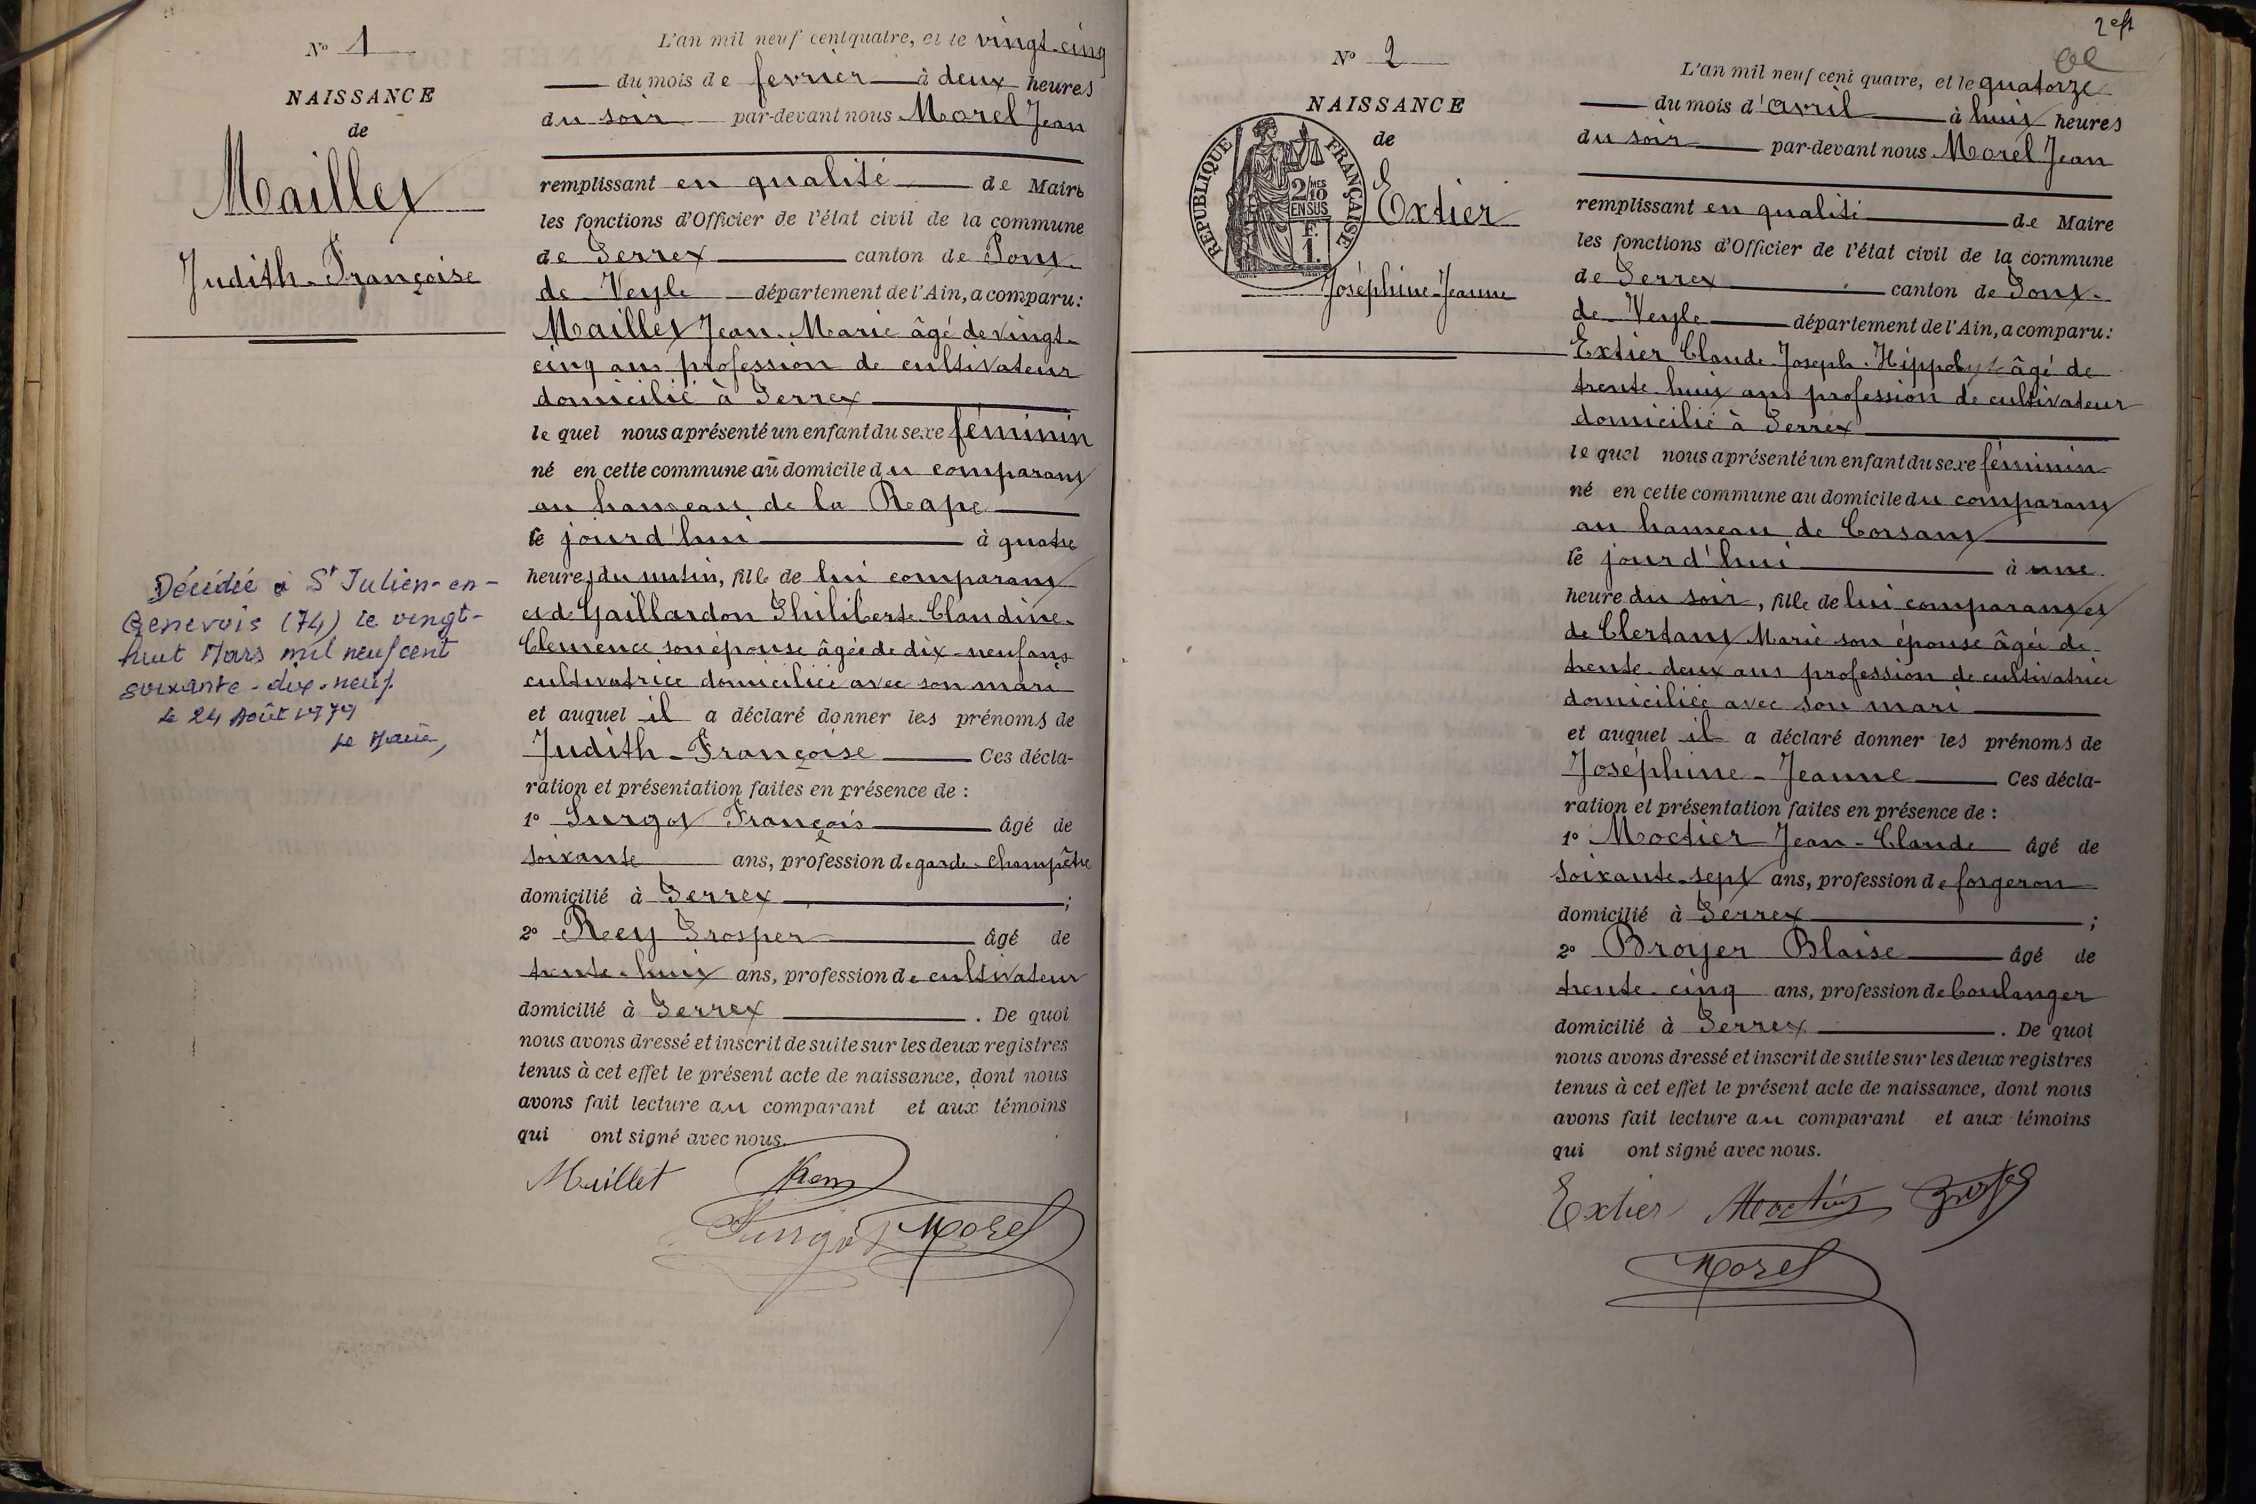 N° 1
NAISSANCE
de
Maillet
Judith-Françoise
Décédée à St Julien-en-
Genevois (74) le vingt-
huit Mars mil neuf cent
soixante-dix-neuf.
le 24 Août 1979
Le Maire,
L'an mil neuf cent quatre, et le vingt-cinq
du mois de fevrier à deux heures
du soir par-devant nous Morel Jean
remplissant en qualité de Maire
les fonctions d'Officier de l'état civil de la commune
de Perrex canton de Pont-
de-Veyle département de l'Ain, a comparu:
Maillet Jean-Marie âgé de vingt-
cinq ans profession de cultivateur
domicilié à Perrex
le quel nous a présenté un enfant du sexe féminin
né en cette commune au domicile du comparant
au hameau de la Reape
le jourd'hui à quatre
heures du matin, fille de lui comparant
et de Gaillardon Philiberte-Claudine-
Clemence son épouse âgée de dix-neuf ans
cultivatrice domiciliée avec son mari
et auquel il a déclaré donner les prénoms de
Judith-Françoise Ces décla-
ration et présentation faites en présence de :
1° Surgot François âgé de
soixante ans, profession de garde-champêtre
domicilié à Perrex ;
2° Rey Prosper âgé de
trente-huit ans, profession de cultivateur
domicilié à Perrex . De quoi
nous avons dressé et inscrit de suite sur les deux registres
tenus à cet effet le présent acte de naissance, dont nous
avons fait lecture au comparant et aux témoins
qui ont signé avec nous.
Maillet
Surgot Morel
2
N° 2
NAISSANCE
de
RÉPUBLIQUE FRANÇAISE
2/10
MES
EN SUS
F.
1.
Extier
Joséphine-Jeanne
L'an mil neuf cent quatre, et le quatorze
du mois d'avril à huit heures
du soir par-devant nous Morel Jean
remplissant en qualité de Maire
les fonctions d'Officier de l'état civil de la commune
de Perrex canton de Pont-
de-Veyle département de l'Ain, a comparu:
Extier Claude-Joseph-Hippolyte âgé de
trente-huit ans profession de cultivateur
domicilié à Perrex
le quel nous a présenté un enfant du sexe féminin
né en cette commune au domicile du comparant
au hameau de Corsant
le jourd'hui à une
heure du soir, fille de lui comparant et
de Clertant Marie son épouse âgée de
trente-deux ans profession de cultivatrice
domiciliée avec son mari
et auquel il a déclaré donner les prénoms de
Joséphine-Jeanne Ces décla-
ration et présentation faites en présence de :
1° Moctier Jean-Claude âgé de
soixante-sept ans, profession de forgeron
domicilié à Perrex ;
2° Broyer Blaise âgé de
trente-cinq ans, profession de boulanger
domicilié à Perrex . De quoi
nous avons dressé et inscrit de suite sur les deux registres
tenus à cet effet le présent acte de naissance, dont nous
avons fait lecture au comparant et aux témoins
qui ont signé avec nous.
Extier Moctier
Morel